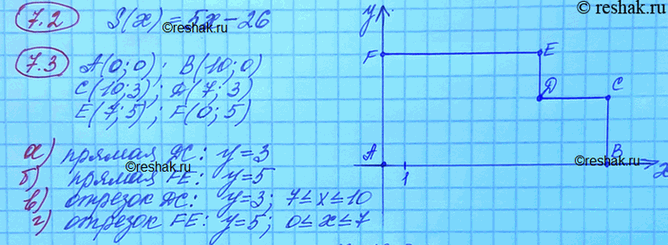 7.2 S(x) = 5x - 26
©reshak.ru
7.3 A(0;0); B(10;0)
C(10;3); Д(7;3)
E(7;5); F(0;5)
а) прямая ДС: y=3
б) прямая FE: y=5
в) отрезок ДС: y=3; 7≤x≤10
г) отрезок FE: y=5; 0≤x≤7
©reshak.ru
y
F
E
Д
C
A
1
B
x
©reshak.ru